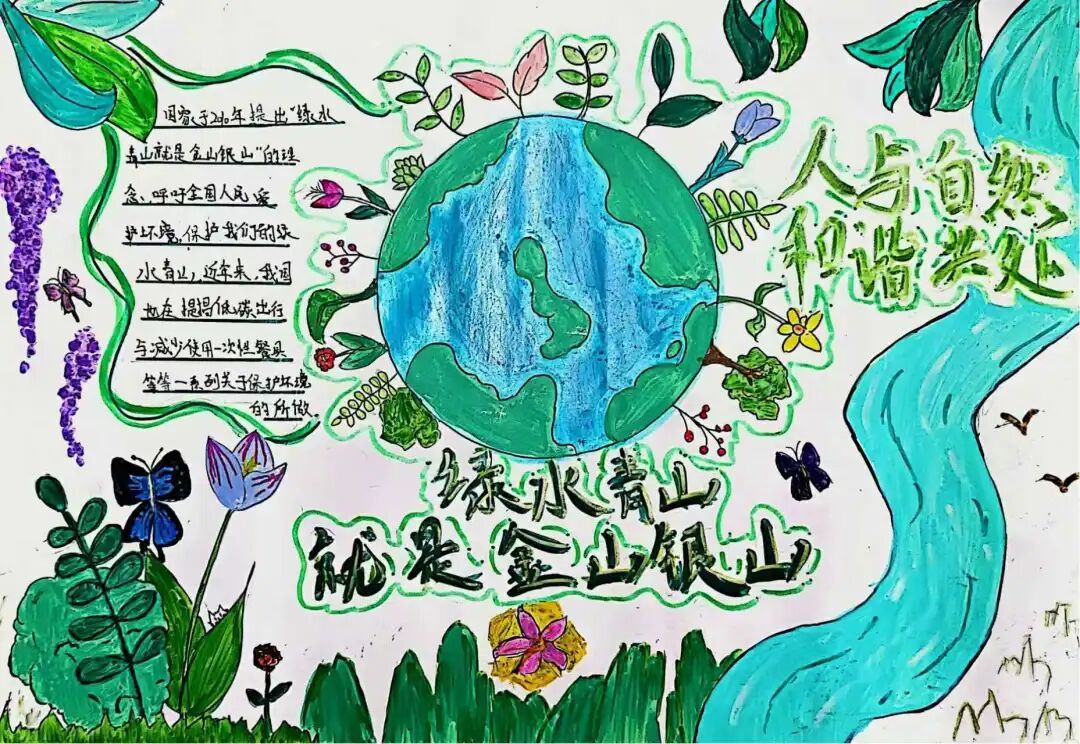 国家于2010年提出"绿水
青山就是金山银山"的理
念、呼吁全国人民爱
护环境,保护我们的绿
水青山,近年来,我国
也在提倡低碳出行
与减少使用一次性餐具
等等一系列关于保护环境
的所做.
人与自然
和谐共处
绿水青山
就是金山银山